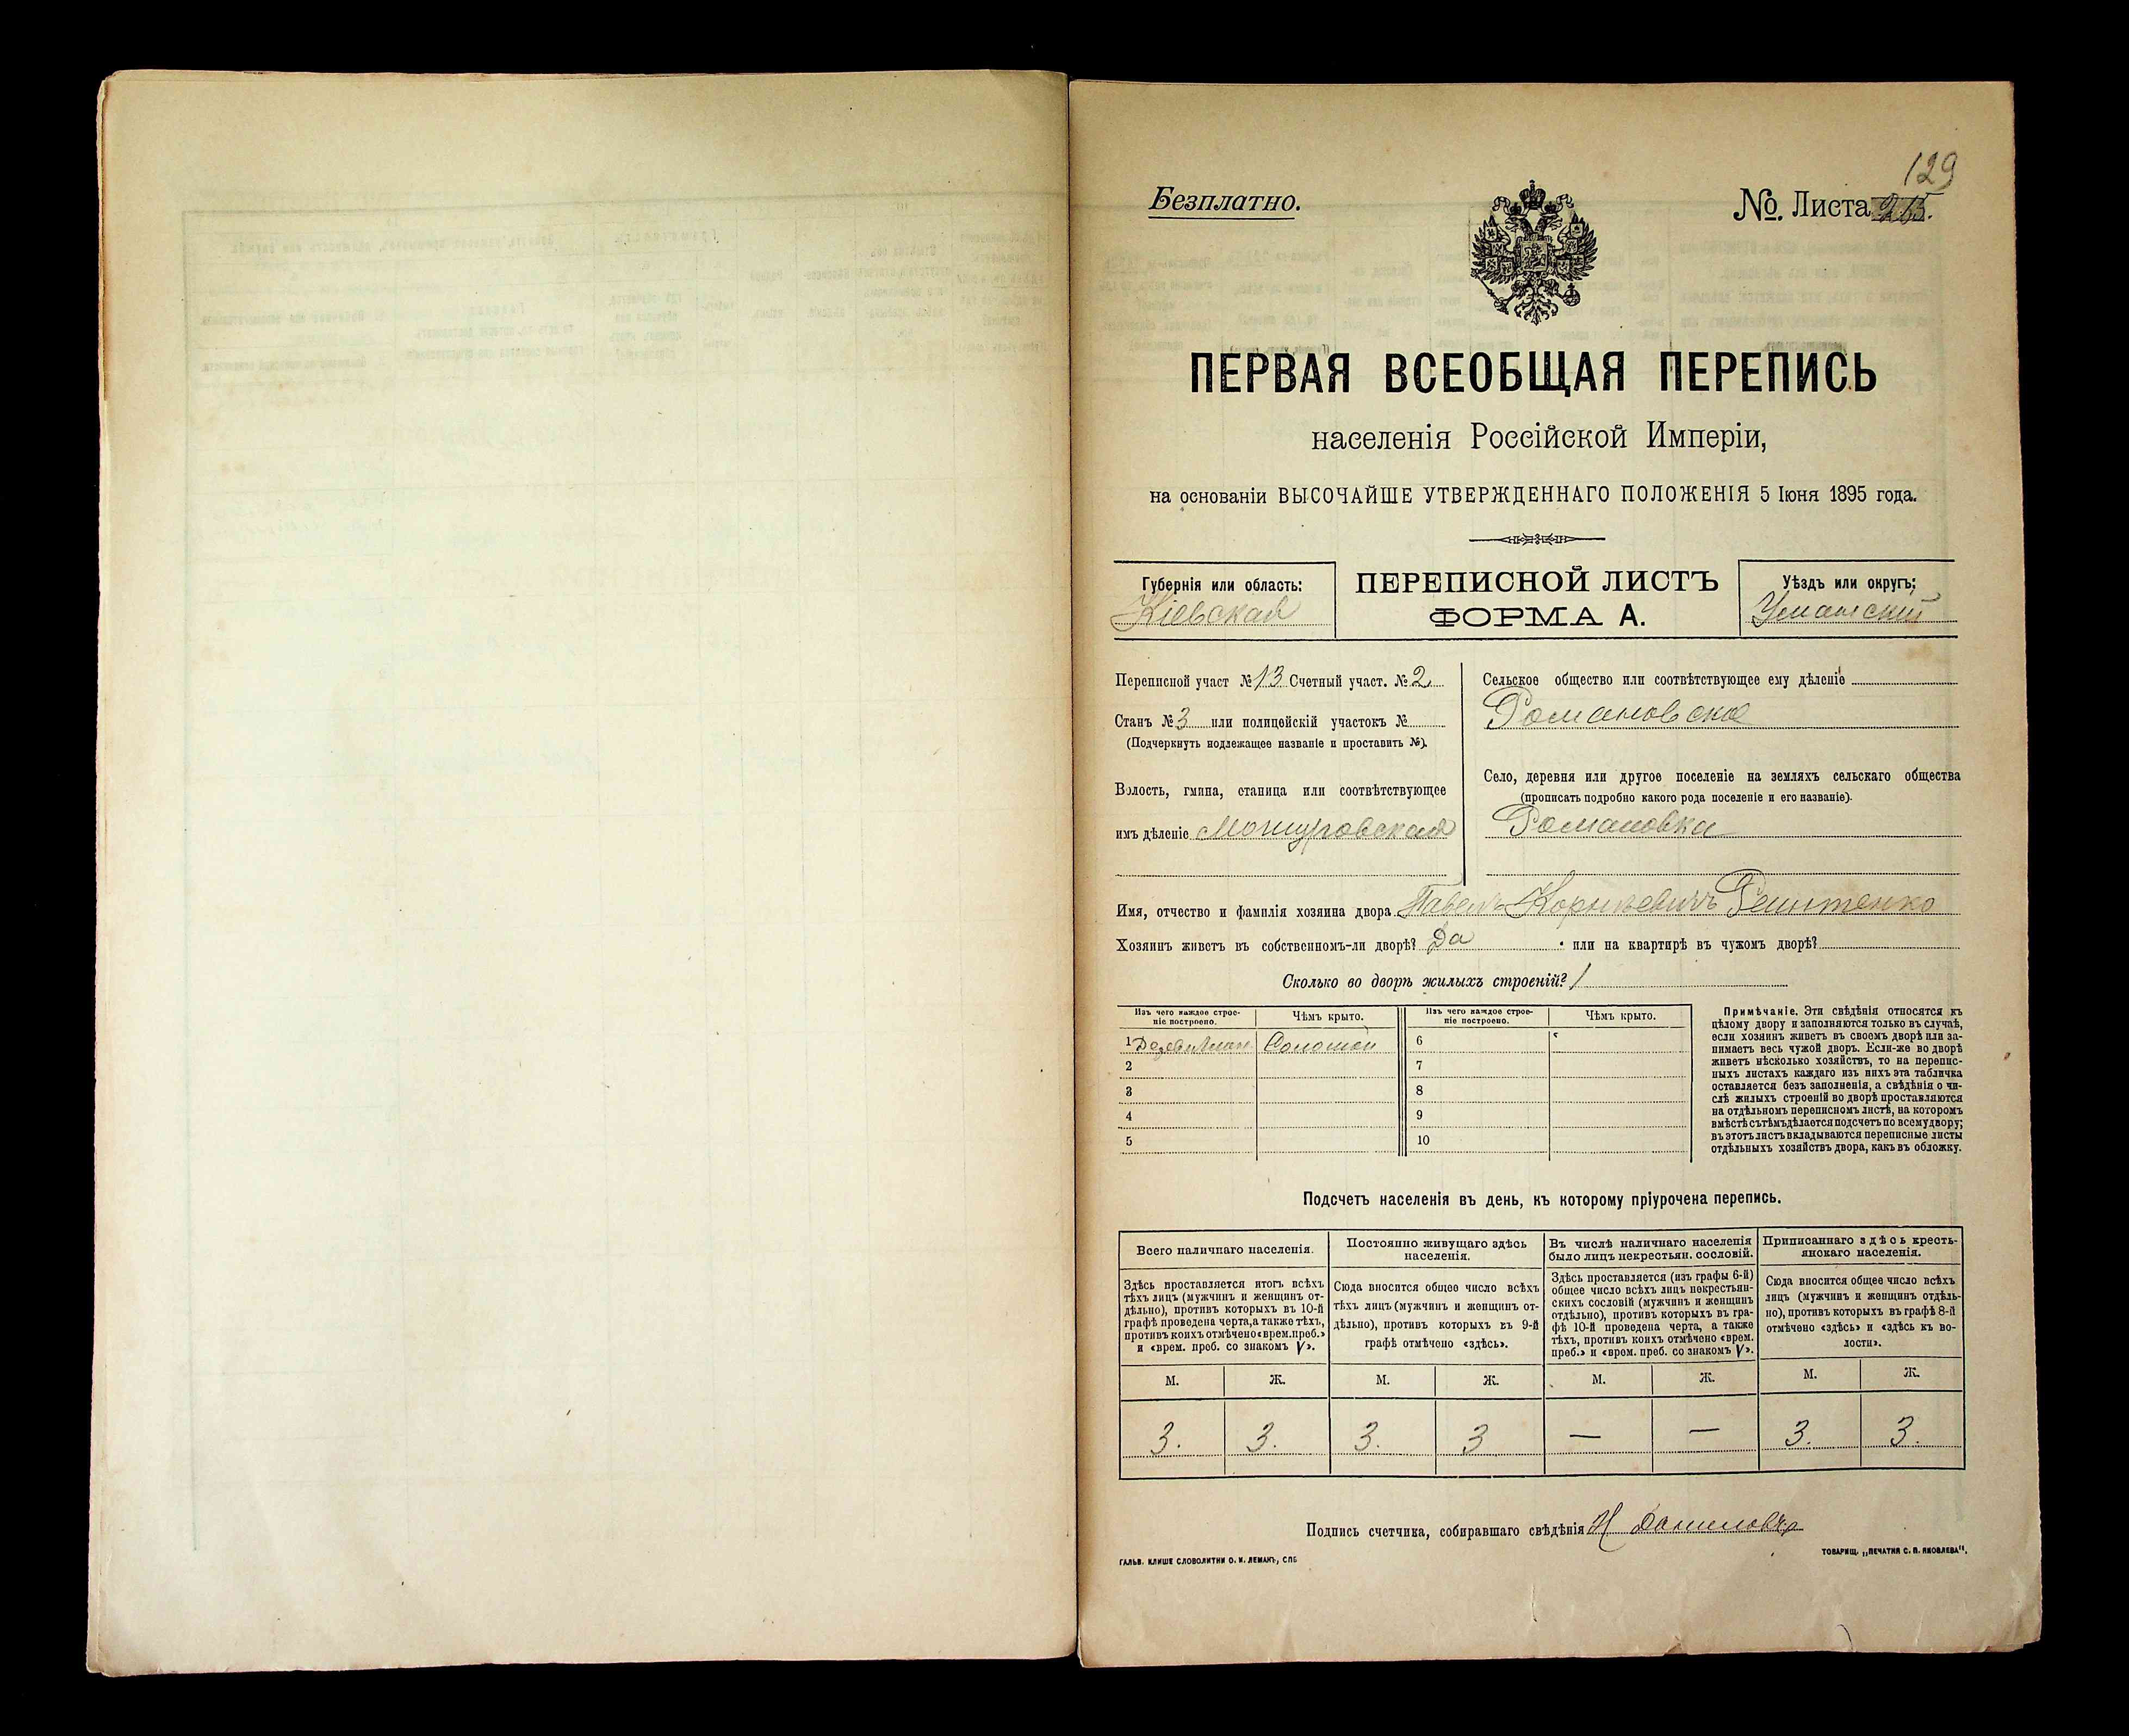 129
Безплатно.
№. Листа
ПЕРВАЯ ВСЕОБЩАЯ ПЕРЕПИСЬ
населенія Россійской Имперіи,
на основаніи ВЫСОЧАЙШЕ УТВЕРЖДЕННАГО ПОЛОЖЕНІЯ 5 Іюня 1895 года.
Губернія или область:
Кіевская
ПЕРЕПИСНОЙ ЛИСТЪ
ФОРМА А.
Уѣздъ или округъ;
Уманскій
Переписной участ №13 Счетный участ. №2
Станъ №3 или полицейскій участокъ №
(Подчеркнуть подлежащее названіе и проставить №).
Волость, гмина, станица или соотвѣтствующее
имъ дѣленіе
Сельское общество или соотвѣтствующее ему дѣленіе
Романовское
Село, деревня или другое поселеніе на земляхъ сельскаго общества
(прописать подробно какого рода поселеніе и его названіе).
Романовка
Имя, отчество и фамилія хозяина двора Павелъ
Хозяинъ живетъ въ собственномъ-ли дворѣ? Да или на квартирѣ въ чужомъ дворѣ?
Сколько во дворѣ жилыхъ строеній? 1
Изъ чего каждое строе-
ніе построено.
Чѣмъ крыто.
Изъ чего каждое строе-
ніе построено.
Чѣмъ крыто.
1 Соломой
2
3
4
5
6
7
8
9
10
Примѣчаніе. Эти свѣдѣнія относятся къ
цѣлому двору и заполняются только въ случаѣ,
если хозяинъ живетъ въ своемъ дворѣ или за-
нимаетъ весь чужой дворъ. Если-же во дворѣ
живетъ нѣсколько хозяйствъ, то на перепис-
ныхъ листахъ каждаго изъ нихъ эта табличка
оставляется безъ заполненія, а свѣдѣнія о чи-
слѣ жилыхъ строеній во дворѣ проставляются
на отдѣльномъ переписномъ листѣ, на которомъ
вмѣстѣ съ тѣмъ дѣлается подсчетъ по всему двору;
въ этотъ листъ вкладываются переписные листы
отдѣльныхъ хозяйствъ двора, какъ въ обложку.
Подсчетъ населенія въ день, къ которому пріурочена перепись.
Всего наличнаго населенія.
Здѣсь проставляется итогъ всѣхъ
тѣхъ лицъ (мужчинъ и женщинъ от-
дѣльно), противъ которыхъ въ 10-й
графѣ проведена черта, а также тѣхъ,
противъ коихъ отмѣчено «врем. преб.»
и «врем. преб. со знакомъ V».
Постоянно живущаго здѣсь
населенія.
Сюда вносится общее число всѣхъ
тѣхъ лицъ (мужчинъ и женщинъ от-
дѣльно), противъ которыхъ въ 9-й
графѣ отмѣчено «здѣсь».
Въ числѣ наличнаго населенія
было лицъ некрестьян. сословій.
Здѣсь проставляется (изъ графы 6-й)
общее число всѣхъ лицъ некрестьян-
скихъ сословій (мужчинъ и женщинъ
отдѣльно), противъ которыхъ въ гра-
фѣ 10-й проведена черта, а также
тѣхъ, противъ коихъ отмѣчено «врем.
преб.» и «врем. преб. со знакомъ V».
Приписаннаго здѣсь кресть-
янскаго населенія.
Сюда вносится общее число всѣхъ
лицъ (мужчинъ и женщинъ отдѣль-
но), противъ которыхъ въ графѣ 8-й
отмѣчено «здѣсь» и «здѣсь къ во-
лости».
М. Ж. М. Ж. М. Ж. М. Ж.
3. 3. 3. 3 — — 3. 3.
Подпись счетчика, собиравшаго свѣдѣнія
ГАЛЬВ. КЛИШЕ СЛОВОЛИТНИ О. И. ЛЕМАНЪ, СПБ
ТОВАРИЩ. „ПЕЧАТНЯ С. П. ЯКОВЛЕВА".